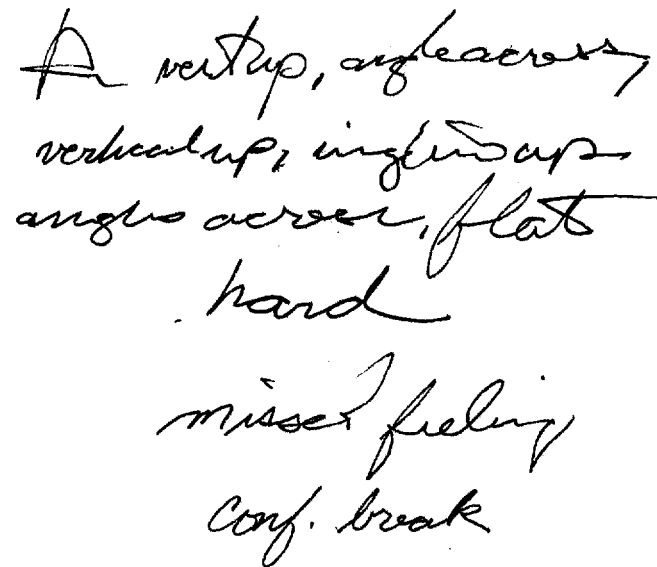 A vert up, angle across,
vertical up, angles up
angles across, flat
hard
missed feeling
conf. break